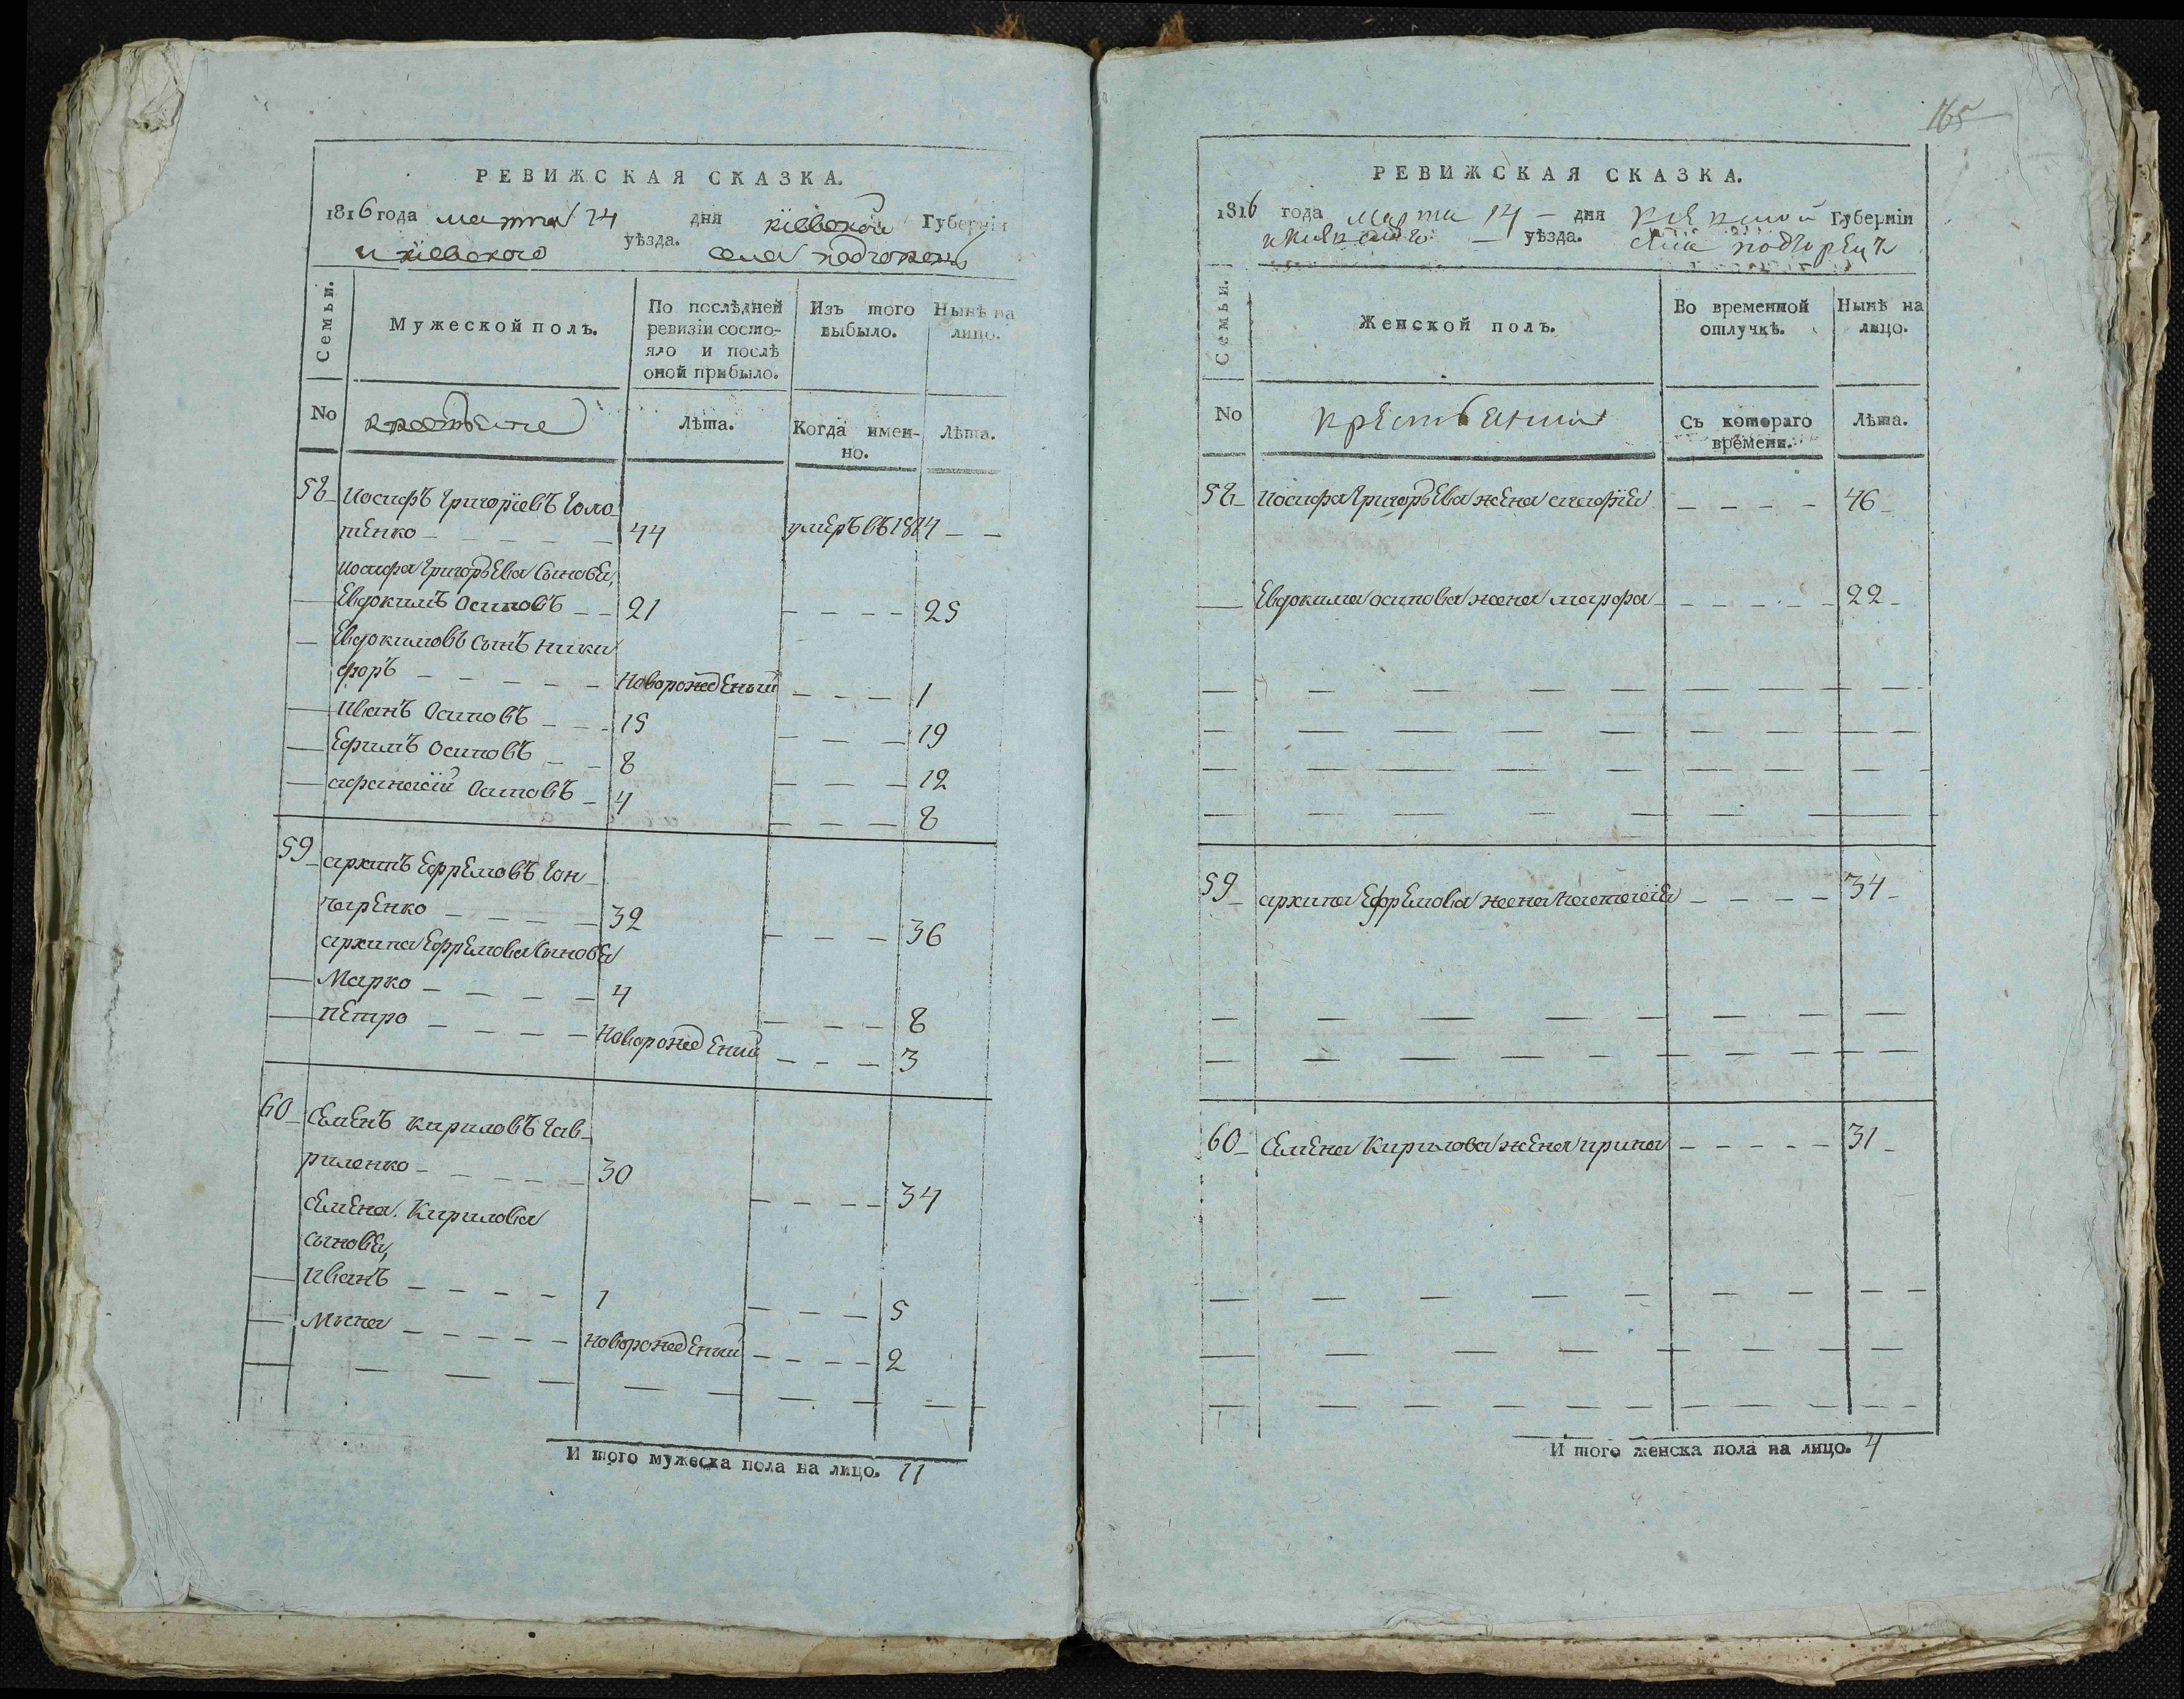 РЕВИЖСКАЯ СКАЗКА.
1816 года марта 14 дня кіевской Губерніи
и кіевского уѣзда. села подгорецъ
Семьи.
Мужеской полъ.
По послѣдней ревизіи состояло и послѣ оной прибыло.
Изъ того выбыло.
Нынѣ на лицо.
No
крестьяне
Лѣта.
Когда именно.
Лѣта.
58 Иосифъ Григоріевъ Голо
тенко 44 умеръ въ 1814
иосифа Григорьева Сыновья,
Евдокимъ Осиповъ 21 25
Евдокимовъ Сынъ Ники
форъ Новорожденый 1
Иванъ Осиповъ 15 19
Ефимъ Осиповъ 8 12
афанасій Осиповъ 4 8
59 архипъ Ефремовъ Гон
чаренко 32 36
архипа Ефремова Сыновья
Марко 4 8
Петро Новорожденый 3
60 Семенъ Кириловъ Гав
риленко 30 34
Семена Кирилова
Сыновья,
Иванъ 1 5
Мина новорожденый 2
И того мужеска пола на лицо. 11
165
РЕВИЖСКАЯ СКАЗКА.
1816 года марта 14 дня Кіевской Губерніи
и Кіевского уѣзда. села подгорецъ
Семьи.
Женской полъ.
Во временной отлучкѣ.
Нынѣ на лицо.
No
крестьянки
Съ котораго времени.
Лѣта.
58 Иосифа Григорьева жена софія 46
Евдокима осипова жена марфа 22
59 архипа Ефремова жена Настасія 34
60 Семена Кирилова жена ирина 31
И того женска пола на лицо. 4